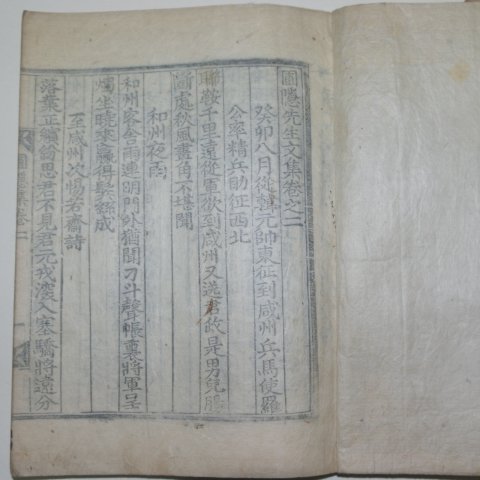 圃隱先生文集卷之二
癸卯八月從韓元帥東征到咸州兵馬使羅
公率精兵助征西北
聯鞍千里遠從軍欲到咸州又送君故是男兒膓
斷處秋風畫角不堪聞
和州夜雨
和州客舍雨連明門外猶聞刁斗聲帳裏將軍呈
燭坐曉來羸得鬂絲成
至咸州次惕若齋詩
落葉正繽翁思君不見君元戎深入塞驕將遠分